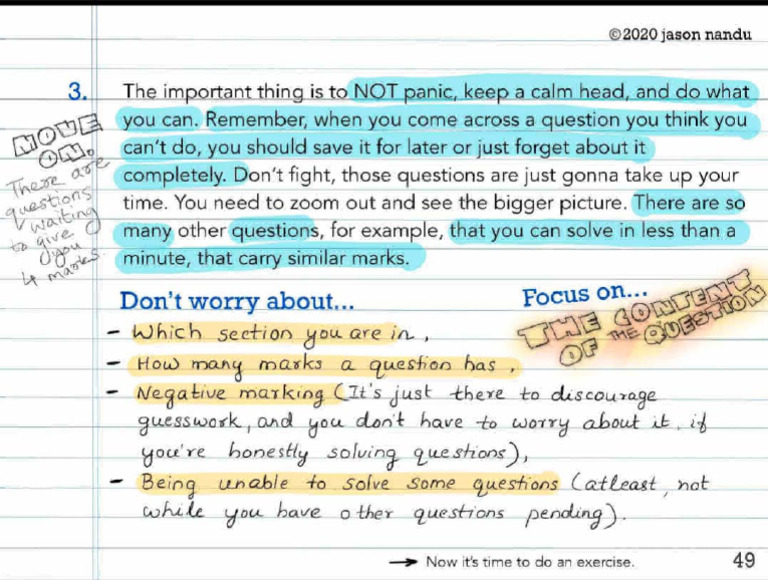 ©2020 jason nandu
3. The important thing is to NOT panic, keep a calm head, and do what
you can. Remember, when you come across a question you think you
can't do, you should save it for later or just forget about it
completely. Don't fight, those questions are just gonna take up your
time. You need to zoom out and see the bigger picture. There are so
many other questions, for example, that you can solve in less than a
minute, that carry similar marks.
MOVE
ON.
There are
questions
waiting
to give
you
4 marks.
Don't worry about...
- Which section you are in,
- How many marks a question has,
- Negative marking (It's just there to discourage
guesswork, and you don't have to worry about it, if
you're honestly solving questions),
- Being unable to solve some questions (atleast, not
while you have other questions pending).
Focus on...
THE CONTENT
OF THE QUESTION
→ Now it's time to do an exercise.
49